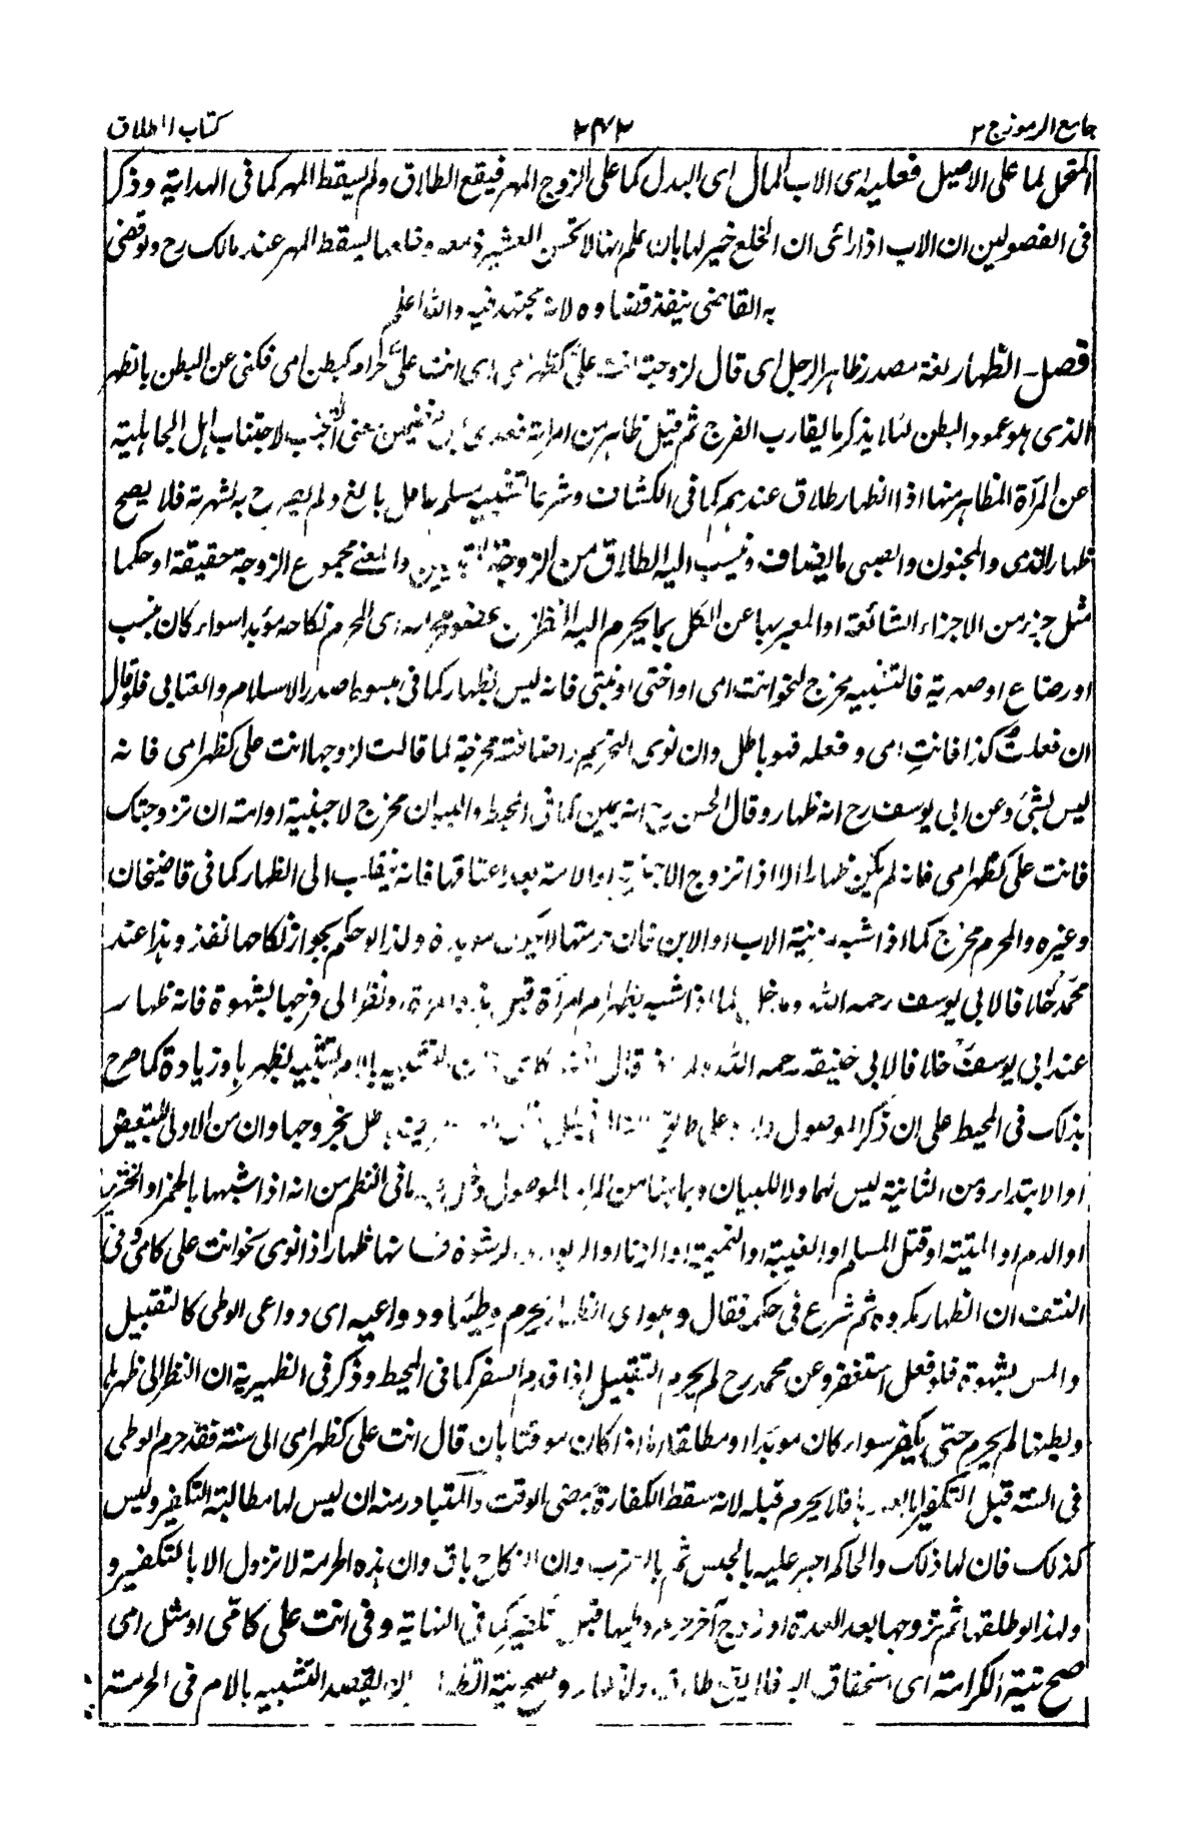 جامع الرموز ج ٢ ٢٤٢ كتاب الطلاق
لما على الاصيل فعليه اى الاب المال اى البدل كما على الزوج المهر فيقع الطلاق ولم يسقط المهر كما فى الهداية وذكر
فى الفصولين ان الاب اذا رائ ان الخلع خير لها بان علم انها لا تحسن العشرة معه يسقط المهر عند مالك رح ولو قضى
به القاضى ينفذ قضاوه لانه مجتهد فيه والله اعلم
فصل - الظهار لغة مصدر ظاهر الرجل اى قال لزوجته انت علىّ كظهر امى اى انت علىّ حرام كبطن امى فكنى عن البطن بالظهر
الذى هو عمود البطن لئلا يذكر ما يقارب الفرج ثم قيل ظاهر من امراته فعدى بمن معنى التجنب لاجتناب اهل الجاهلية
عن المرأة المظاهر منها اذ الظهار طلاق عندهم كما فى الكشاف وشرعا تشبيه مسلم عاقل بالغ ولم يصرح به لشهرته فلا يصح
ظهار الذمى والمجنون والصبى ما يضاف وينسب اليه الطلاق من الزوجة والمعنى مجموع الزوجة حقيقة او حكما
مثل جزء من الاجزاء الشائعة او المعبر بها عن الكل بما يحرم اليه النظر من عضو محرمه اى المحرم نكاحه مؤبدا سواء كان بنسب
او رضاع او صهرية فالتشبيه مخرج لنحو انت امى او اختى او بنتى فانه ليس بظهار كما فى مبسوط صدر الاسلام والعتابى فلو قال
ان فعلت كذا فانتِ امى وفعله فهو باطل وان نوى التحريم واضافته مخرجة لما قالت لزوجها انت على كظهر امى فانه
ليس بشئ وعن ابى يوسف رح انه ظهار وقال الحسن رح انه يمين كما فى المحيط مخرج لاجنبية او امته ان تزوجتك
فانت على كظهر امى فانه لم يكن ظهارا الا اذا تزوج الاجنبية او الامة بعد اعتاقها فانه ينقلب الى الظهار كما فى قاضيخان
وغيره والمحرم مخرج كما اذا شبه بمزنية الاب او الابن فان حرمتها لا يكون موبدة ولذا لو حكم بجواز نكاحها نفذ وهذا عند
محمّد خلافا لابى يوسف رحمه الله ومدخل لما اذا شبه بظهر ام امرأة قبل هذه المرأة ونظر الى فرجها بشهوة فانه ظهار
عند ابى يوسف خلافا لابى حنيفة رحمه الله قال التشبيه بالام لتشبيه بظهرها وزيادة كما صرح
بذلك فى المحيط على ان ذكر الموصول بخروجها وان من الاولى للتبعيض
او الابتداء ومن الثانية ليس لها ولا للبيان وبابنا من الموصول ما فى النظم من انه اذا شبهها بالخمر او الخنزير
او الدم او الميتة او قتل المسلم او الغيبة او النميمة او الزنا او الربوا او الرشوة فانها ظهار اذا نوى نحو انت على كامى وفى
النتف ان الظهار مكروه ثم شرع فى حكمه فقال وهو اى الظهار يحرم وطيها ودواعيه اى دواعى الوطى كالتقبيل
والمس بشهوة فلو فعل استغفر وعن محمد رح لم يحرم التقبيل اذا قدم السفر كما فى المحيط وذكر فى الظهيرية ان النظر الى ظهرها
وبطنها لم يحرم حتى يكفر سواء كان موبدا او مطلقا اما اذا كان موقتا بان قال انت على كظهر امى الى سنة فقد حرم الوطى
فى السنة قبل التكفير اما بعدها فلا يحرم قبله لانه سقط الكفارة بمضى الوقت والمتبادر منه ان ليس لها مطالبة التكفير وليس
كذلك فان لها ذلك والحاكم اجبر عليه بالحبس ثم بالضرب وان النكاح باق وان هذه الحرمة لا تزول الا بالتكفير و
ولهذا لو طلقها ثم تزوجها بعد العدة او زوج آخر حرم وطيها قبل تكفيره كما فى النهاية وفى انت على كامى او مثل امى
صح نية الكرامة اى استحقاق البر فلا يقع طلاق ولا ظهار وصح نية الظهار لانه يقصد التشبيه بالام فى الحرمة